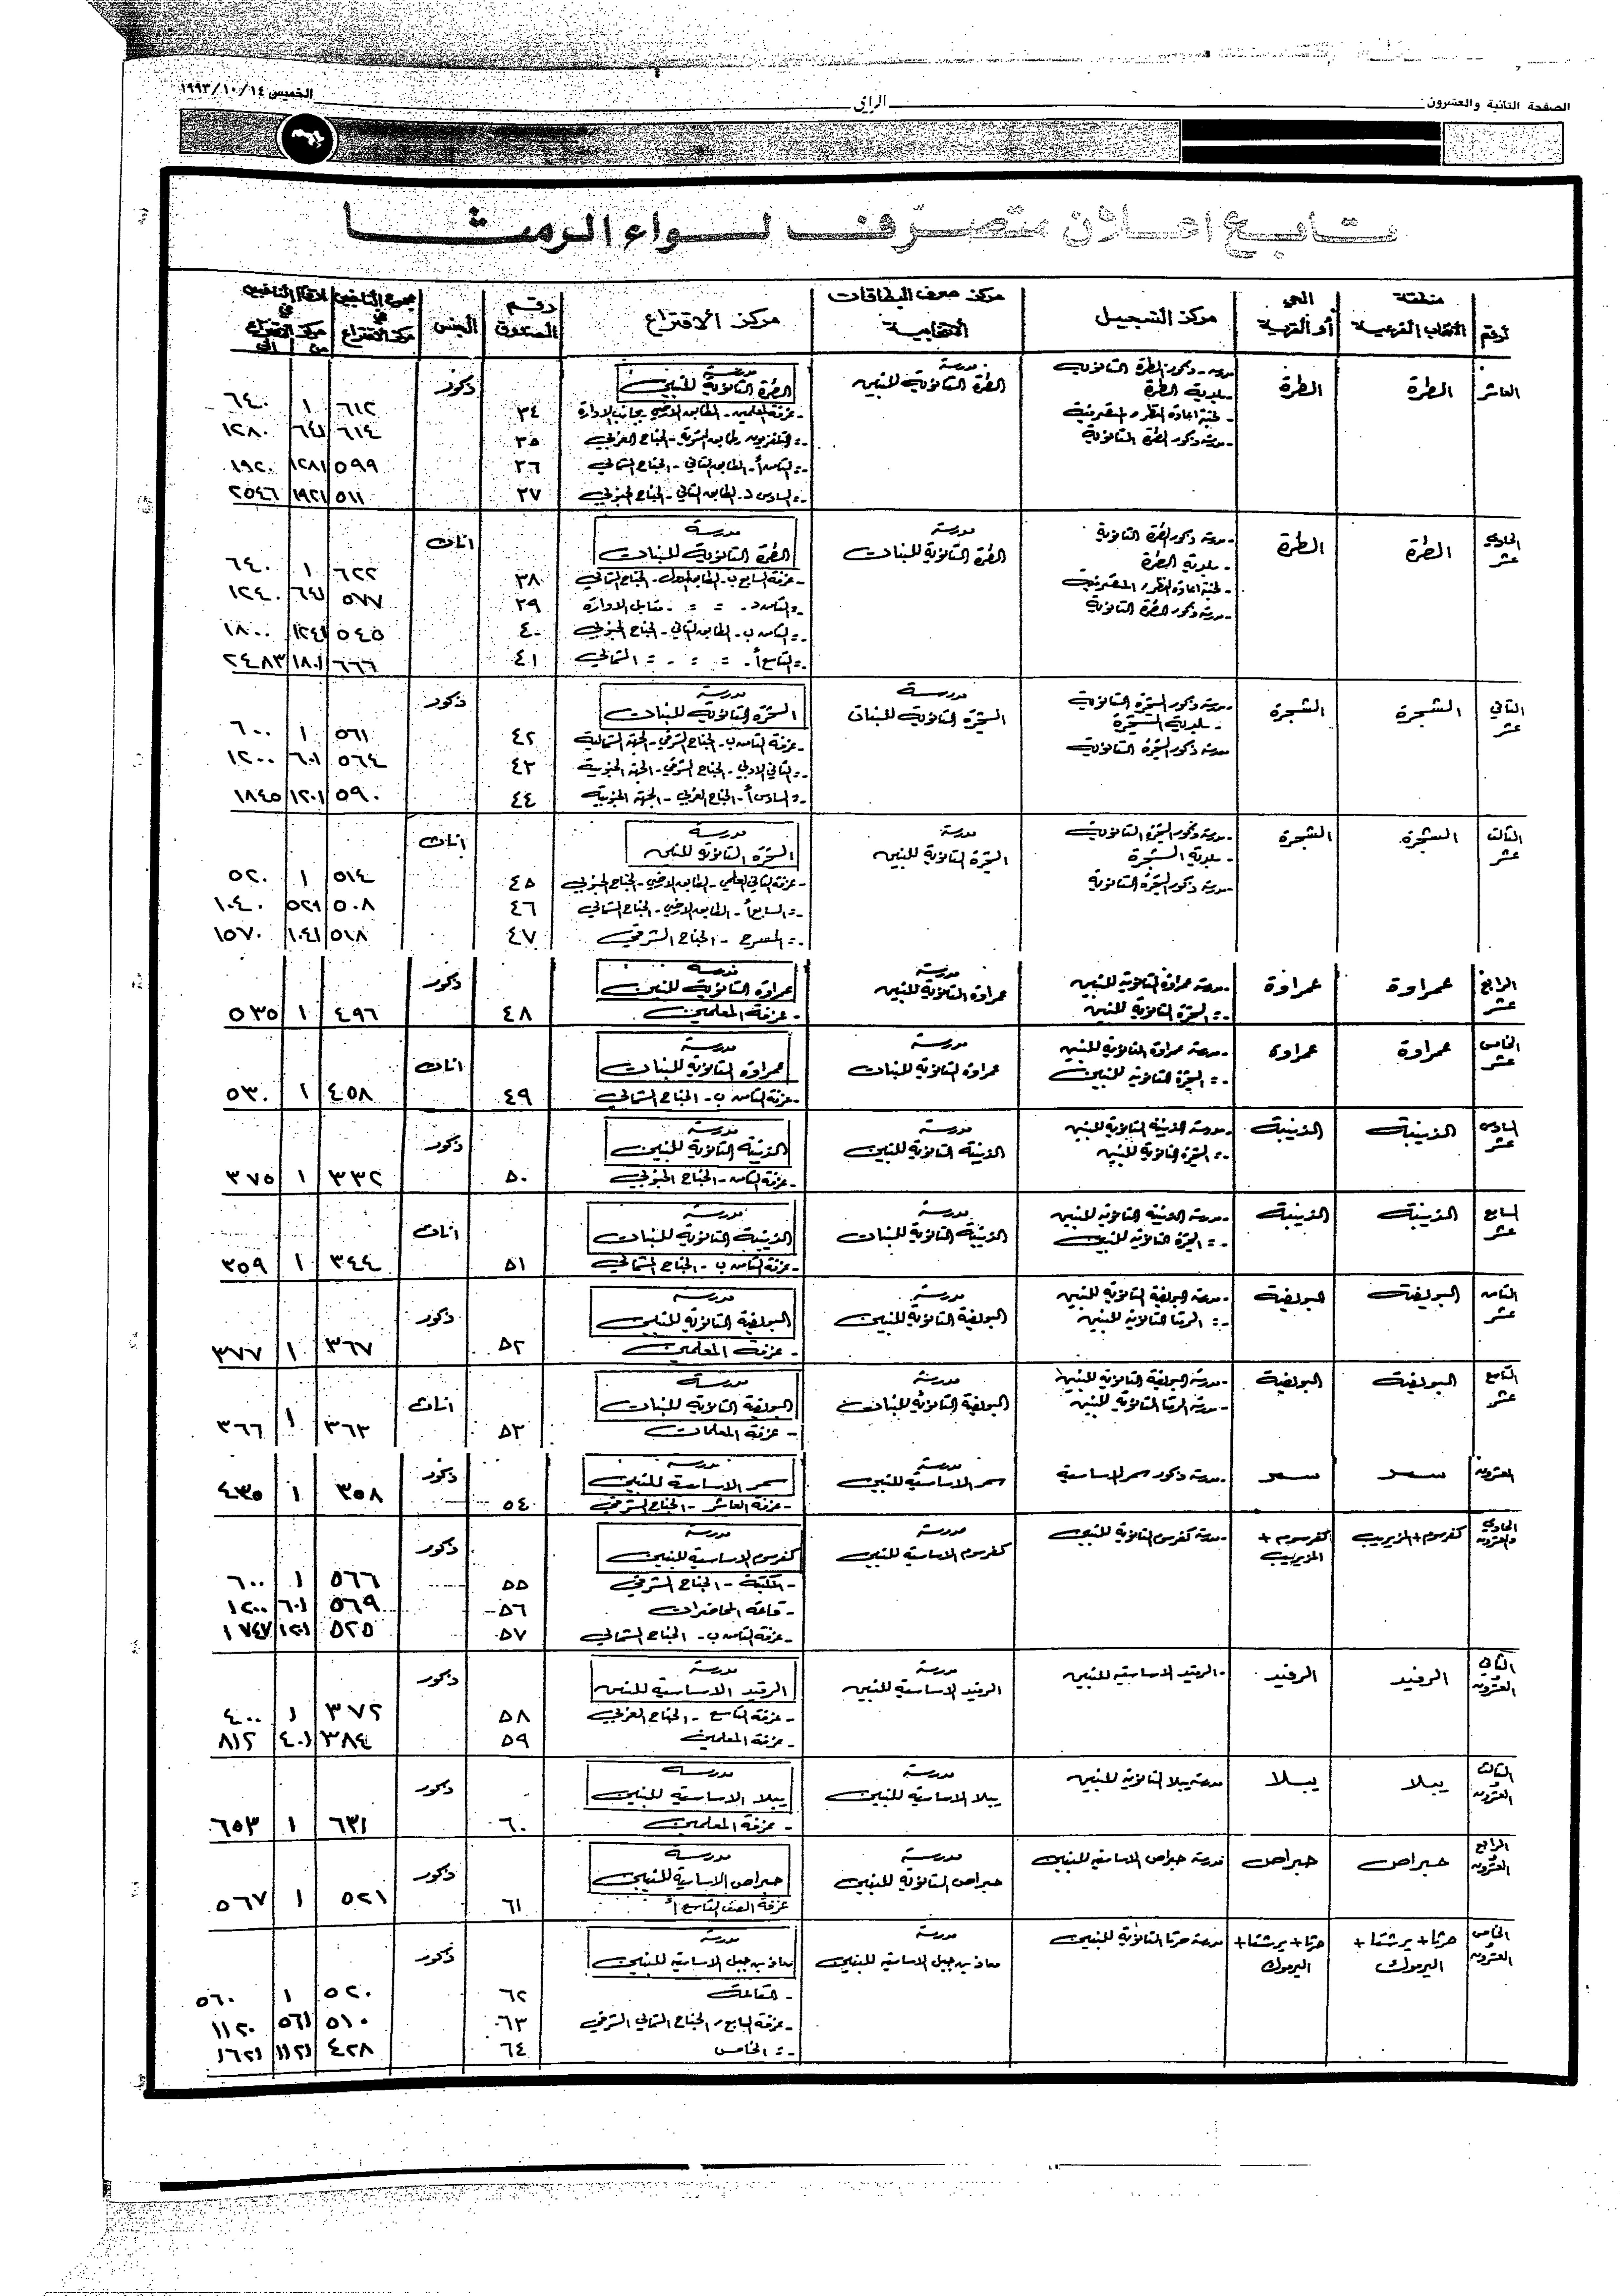 الصفحة الثانية والعشرون
الراي
الخميس ١٩٩٣/١٠/١٤
تابع اعلان متصرف لواء الرمثا
الرقم | منطقة الانتخاب الفرعية | الحي أو القرية | مركز التسجيل | مركز صرف البطاقات الانتخابية | مركز الاقتراع | رقم الصندوق | الجنس | مجموع الناخبين في مركز الاقتراع | ارقام الناخبين في مركز الاقتراع من | الى
العاشر | الطرة | الطرة | مدرسة ذكور الطرة الثانوية | مدرسة الطرة الثانوية للبنين | مدرسة الطرة الثانوية للبنين | ذكور
- بلدية الطرة | - غرفة المعلمين - الطابق الارضي بجانب الادارة | ٣٤ | ٦١٢ | ١ | ٦٤٠
- مدرسة ذكور الطرة الثانوية | ٣٥ | ٦١٤ | ٦٤١ | ١٢٨٠
- = الثامن أ - الطابق الثاني - الجناح الشمالي | ٣٦ | ٥٩٩ | ١٢٨١ | ١٩٢٠
- = السادس د - الطابق الثاني - الجناح الجنوبي | ٣٧ | ٥١١ | ١٩٢١ | ٢٥٤٦
الحادي عشر | الطرة | الطرة | - مدرسة ذكور الطرة الثانوية | مدرسة الطرة الثانوية للبنات | مدرسة الطرة الثانوية للبنات | اناث
- بلدية الطرة | - غرفة السابع ب - الطابق الاول - الجناح الشمالي | ٣٨ | ٦٢٢ | ١ | ٦٤٠
- = الثامن د - = = - مقابل الادارة | ٣٩ | ٥٧٧ | ٦٤١ | ١٢٤٠
- مدرسة ذكور الطرة الثانوية | - = الثامن ب - الطابق الثاني - الجناح الجنوبي | ٤٠ | ٥٤٥ | ١٢٤١ | ١٨٠٠
- = التاسع أ - = = - = الشمالي | ٤١ | ٦٦٦ | ١٨٠١ | ٢٤٨٣
الثاني عشر | الشجرة | الشجرة | - مدرسة ذكور الشجرة الثانوية | مدرسة الشجرة الثانوية للبنات | مدرسة الشجرة الثانوية للبنات | ذكور
- بلدية الشجرة | - غرفة الثامن ب - الجناح الشرقي - الجهة الشمالية | ٤٢ | ٥٦١ | ١ | ٦٠٠
مدرسة ذكور الشجرة الثانوية | - = الثاني الادبي - الجناح الشرقي - الجهة الجنوبية | ٤٣ | ٥٦٤ | ٦٠١ | ١٢٠٠
- = السادس أ - الجناح الغربي - الجهة الجنوبية | ٤٤ | ٥٩٠ | ١٢٠١ | ١٨٤٥
الثالث عشر | الشجرة | الشجرة | - مدرسة ذكور الشجرة الثانوية | مدرسة الشجرة الثانوية للبنين | مدرسة الشجرة الثانوية للبنين | اناث
- بلدية الشجرة | - غرفة الثاني العلمي - الطابق الارضي - الجناح الجنوبي | ٤٥ | ٥١٤ | ١ | ٥٢٠
- مدرسة ذكور الشجرة الثانوية | - = السابع أ - الطابق الارضي - الجناح الشمالي | ٤٦ | ٥٠٨ | ٥٢١ | ١٠٤٠
- = المسرح - الجناح الشرقي | ٤٧ | ٥١٨ | ١٠٤١ | ١٥٧٠
الرابع عشر | عمراوة | عمراوة | - مدرسة عمراوة الثانوية للبنين | مدرسة عمراوة الثانوية للبنين | مدرسة عمراوة الثانوية للبنين | ذكور
- = الشجرة الثانوية للبنين | - غرفة المعلمين | ٤٨ | ٤٩٦ | ١ | ٥٣٥
الخامس عشر | عمراوة | عمراوة | - مدرسة عمراوة الثانوية للبنين | مدرسة عمراوة الثانوية للبنات | مدرسة عمراوة الثانوية للبنات | اناث
- = الشجرة الثانوية للبنين | - غرفة الثامن ب - الجناح الشمالي | ٤٩ | ٤٥٨ | ١ | ٥٣٠
السادس عشر | الذنيبة | الذنيبة | - مدرسة الذنيبة الثانوية للبنين | مدرسة الذنيبة الثانوية للبنين | مدرسة الذنيبة الثانوية للبنين | ذكور
- = الشجرة الثانوية للبنين | - غرفة الثامن - الجناح الجنوبي | ٥٠ | ٣٣٢ | ١ | ٣٧٥
السابع عشر | الذنيبة | الذنيبة | - مدرسة الذنيبة الثانوية للبنين | مدرسة الذنيبة الثانوية للبنات | مدرسة الذنيبة الثانوية للبنات | اناث
- = الشجرة الثانوية للبنين | - غرفة الثامن ب - الجناح الشمالي | ٥١ | ٣٤٤ | ١ | ٣٥٩
الثامن عشر | البويضة | البويضة | - مدرسة البويضة الثانوية للبنين | مدرسة البويضة الثانوية للبنين | مدرسة البويضة الثانوية للبنين | ذكور
- = الرمثا الثانوية للبنين | - غرفة المعلمين | ٥٢ | ٣٦٧ | ١ | ٣٧٧
التاسع عشر | البويضة | البويضة | - مدرسة البويضة الثانوية للبنين | مدرسة البويضة الثانوية للبنات | مدرسة البويضة الثانوية للبنات | اناث
- مدرسة الرمثا الثانوية للبنين | - غرفة المعلمات | ٥٣ | ٣٦٣ | ١ | ٣٦٦
العشرون | سمر | سمر | - مدرسة ذكور سمر الاساسية | مدرسة سمر الاساسية للبنين | مدرسة سمر الاساسية للبنين | ذكور
- غرفة العاشر - الجناح الشرقي | ٥٤ | ٣٥٨ | ١ | ٤٣٥
الحادي والعشرون | كفرسوم + المزيريب | كفرسوم + المزيريب | - مدرسة كفرسوم الثانوية للبنين | مدرسة كفرسوم الاساسية للبنين | مدرسة كفرسوم الاساسية للبنين | ذكور
- المكتبة - الجناح الشرقي | ٥٥ | ٥٦٦ | ١ | ٦٠٠
- قاعة المحاضرات | ٥٦ | ٥٦٩ | ٦٠١ | ١٢٠٠
- غرفة الثامن ب - الجناح الشمالي | ٥٧ | ٥٢٥ | ١٢٠١ | ١٧٤٧
الثاني والعشرون | الرفيد | الرفيد | - الرفيد الاساسية للبنين | مدرسة الرفيد الاساسية للبنين | مدرسة الرفيد الاساسية للبنين | ذكور
- غرفة التاسع - الجناح الغربي | ٥٨ | ٣٧٢ | ١ | ٤٠٠
- غرفة المعلمين | ٥٩ | ٣٨٤ | ٤٠١ | ٨١٢
الثالث والعشرون | يبلا | يبلا | مدرسة يبلا الثانوية للبنين | مدرسة يبلا الاساسية للبنين | مدرسة يبلا الاساسية للبنين | ذكور
- غرفة المعلمين | ٦٠ | ٦٣١ | ١ | ٦٥٣
الرابع والعشرون | حبراص | حبراص | مدرسة حبراص الاساسية للبنين | مدرسة حبراص الثانوية للبنين | مدرسة حبراص الاساسية للبنين | ذكور
غرفة الصف التاسع أ | ٦١ | ٥٢١ | ١ | ٥٦٧
الخامس والعشرون | حرثا + يرشتا + اليرموك | حرثا + يرشتا + اليرموك | مدرسة حرثا الثانوية للبنين | مدرسة معاذ بن جبل الاساسية للبنين | مدرسة معاذ بن جبل الاساسية للبنين | ذكور
- القاعة | ٦٢ | ٥٢٠ | ١ | ٥٦٠
- غرفة السابع / الجناح الشمالي الشرقي | ٦٣ | ٥١٠ | ٥٦١ | ١١٢٠
- = الخامس | ٦٤ | ٤٢٨ | ١١٢١ | ١٦٢١